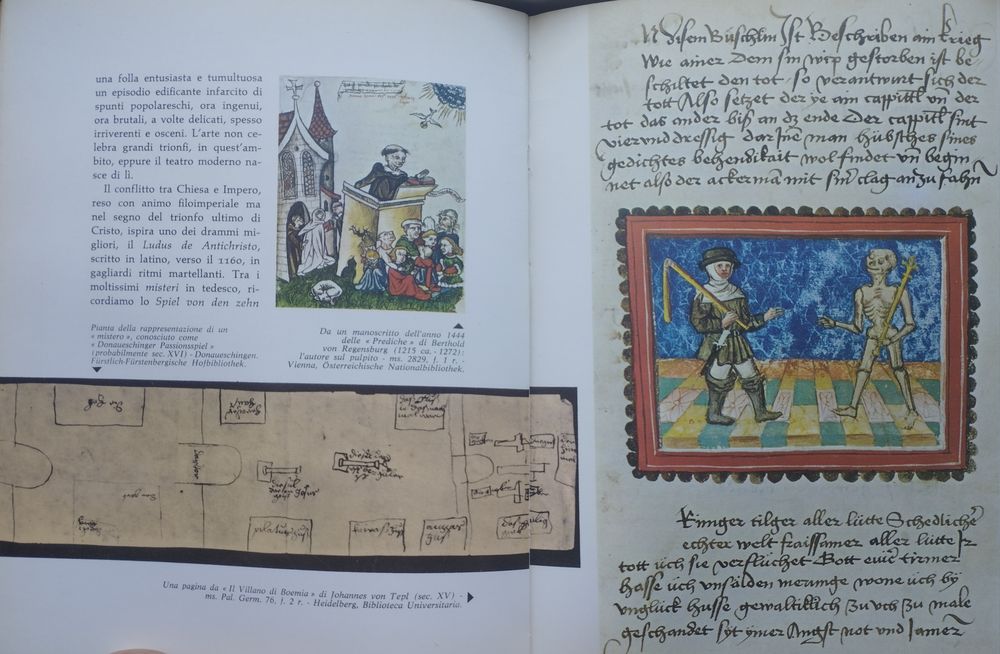 una folla entusiasta e tumultuosa
un episodio edificante infarcito di
spunti popolareschi, ora ingenui,
ora brutali, a volte delicati, spesso
irriverenti e osceni. L'arte non ce-
lebra grandi trionfi, in quest'am-
bito, eppure il teatro moderno na-
sce di lì.
Il conflitto tra Chiesa e Impero,
reso con animo filoimperiale ma
nel segno del trionfo ultimo di
Cristo, ispira uno dei drammi mi-
gliori, il Ludus de Antichristo,
scritto in latino, verso il 1160, in
gagliardi ritmi martellanti. Tra i
moltissimi misteri in tedesco, ri-
cordiamo lo Spiel von den zehn
Pianta della rappresentazione di un
« mistero », conosciuto come
« Donaueschinger Passionsspiel »
(probabilmente sec. XVI) - Donaueschingen.
Fürstlich-Fürstenbergische Hofbibliothek.
Da un manoscritto dell'anno 1444
delle « Prediche » di Berthold
von Regensburg (1215 ca. - 1272):
l'autore sul pulpito - ms. 2829, f. 1 r. -
Vienna, Österreichische Nationalbibliothek.
Una pagina da « Il Villano di Boemia » di Johannes von Tepl (sec. XV) -
ms. Pal. Germ. 76, f. 2 r. - Heidelberg, Biblioteca Universitaria.
N disem Büschlin Ist Beschriben ain krieg
Wie ainer Dem sin wip gestorben ist be
schiltet den tot so verantwurt sich der
tott Also setzet der ye ain cappittl vn̄ der
tot das ander biß an dz ende Der cappittl sint
vier vnd dressig dar Jnē man hübsches sines
gedichtes behendikait wol findet vn̄ begin
net also der ackermā mit siner clag an zu fahn
tilger aller lütte Schedlicher
echter welt fraissamer aller lütte Jr
tott üch sie verflüchet Gott euwer tirmer
hasse üch vnsälden merunge wone üch by
vnglück husse gewaltiklich zu vch zu male
geschandet syt ymer Angst not vnd Jamer